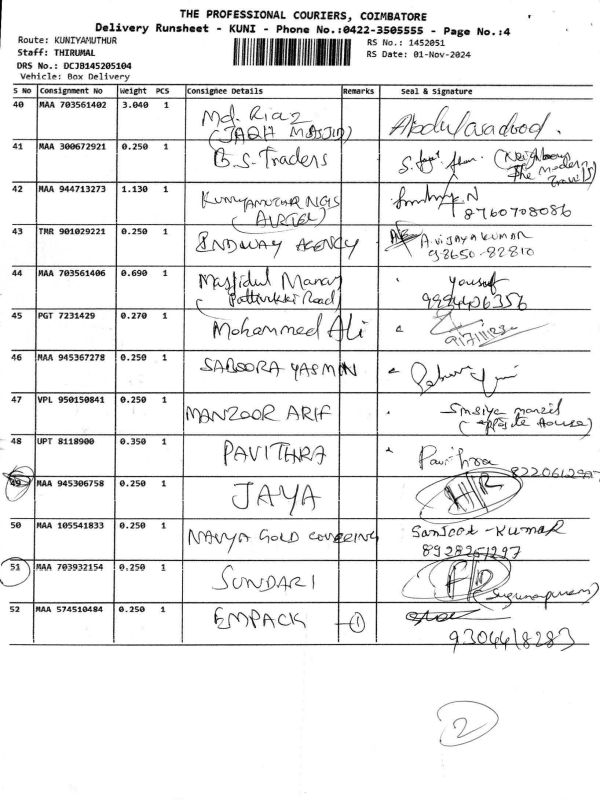 THE PROFESSIONAL COURIERS, COIMBATORE
Delivery Runsheet - KUNI - Phone No.:0422-3505555 - Page No.:4
Route: KUNIYAMUTHUR
RS No.: 1452051
Staff: THIRUMAL
RS Date: 01-Nov-2024
DRS No.: DCJB145205104
Vehicle: Box Delivery
S No Consignment No Weight PCS Consignee Details Remarks Seal & Signature
40 MAA 703561402 3.040 1 Md. Riaz
(JAQH MASJID)
41 MAA 300672921 0.250 1 B.S. Traders
42 MAA 944713273 1.130 1 KUNIYAMUTHUR NGS
(AIRTEL) 8760708086
43 TMR 901029221 0.250 1 ENDWAY AGENCY A.VIJAYAKUMAR
98650-82810
44 MAA 703561406 0.690 1 Masjidul Manar yousuf
Road) 9994406356
45 PGT 7231429 0.270 1 Mohammed Ali
46 MAA 945367278 0.250 1 SABOORA YASMIN
47 VPL 950150841 0.250 1 MANZOOR ARIF
(opposite House)
48 UPT 8118900 0.350 1 PAVITHRA Pavithra
49 MAA 945306758 0.250 1 JAYA H/R
50 MAA 105541833 0.250 1 NAVYA GOLD COVERING Sanjoot-Kumar
8928261297
51 MAA 703932154 0.250 1 SUNDARI F/D
(Sugunapuram)
52 MAA 574510484 0.250 1 EMPACK 1
9304418283
2